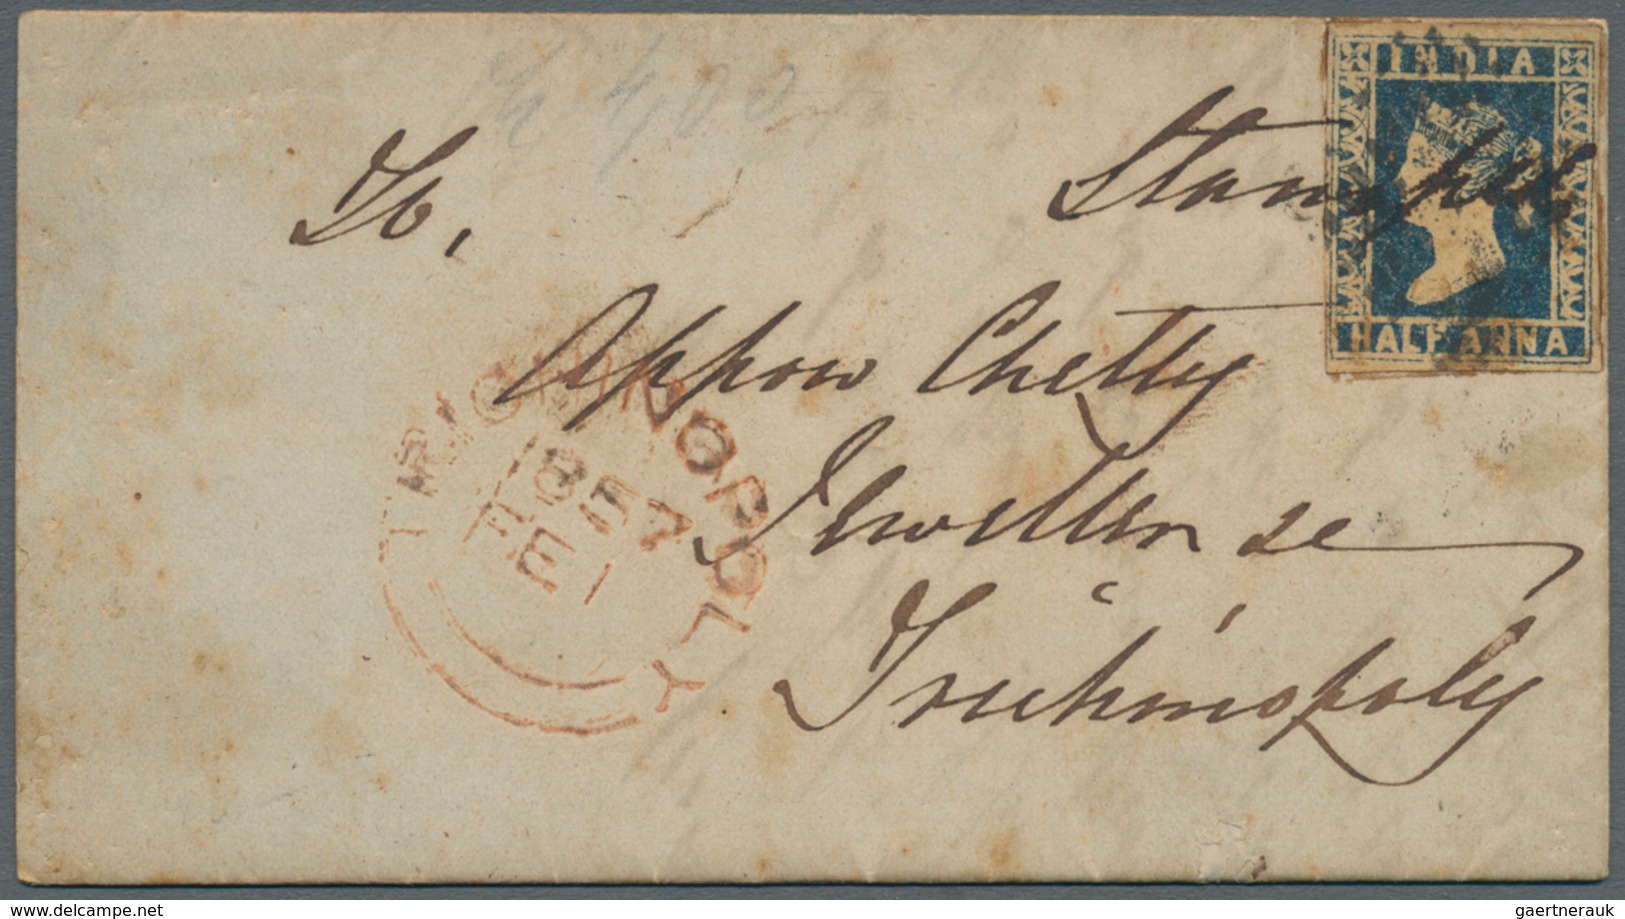 £ 4,00
INDIA
HALF ANNA
To,
Stamped
Appow Chetty
Jeweller &c
Trichinopoly
TRICHINOPOLY
1857
FE 1
delcampe.net
gaertnerauk